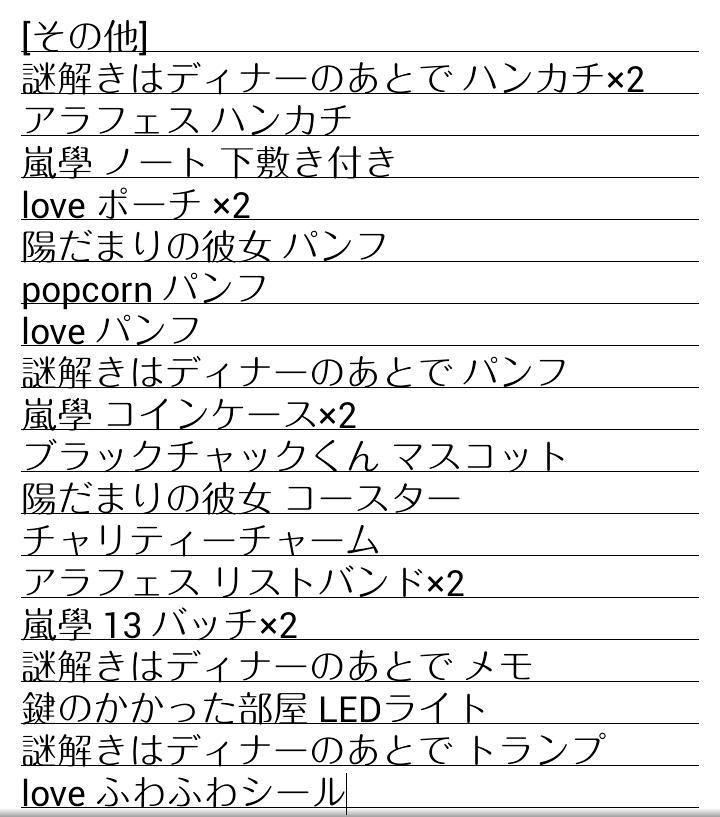 [その他]
謎解きはディナーのあとで ハンカチ×2
アラフェス ハンカチ
嵐學 ノート 下敷き付き
love ポーチ ×2
陽だまりの彼女 パンフ
popcorn パンフ
love パンフ
謎解きはディナーのあとで パンフ
嵐學 コインケース×2
ブラックチャックくん マスコット
陽だまりの彼女 コースター
チャリティーチャーム
アラフェス リストバンド×2
嵐學 13 バッチ×2
謎解きはディナーのあとで メモ
鍵のかかった部屋 LEDライト
謎解きはディナーのあとで トランプ
love ふわふわシール